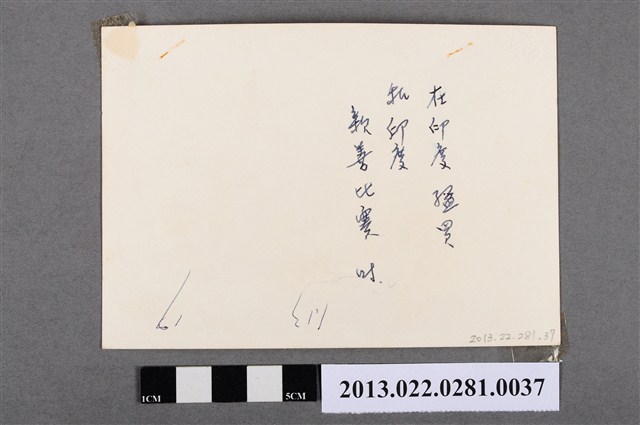 在印度孟買
和印度
親善比賽時
2013.22.281.37
1CM
5CM
2013.022.0281.0037